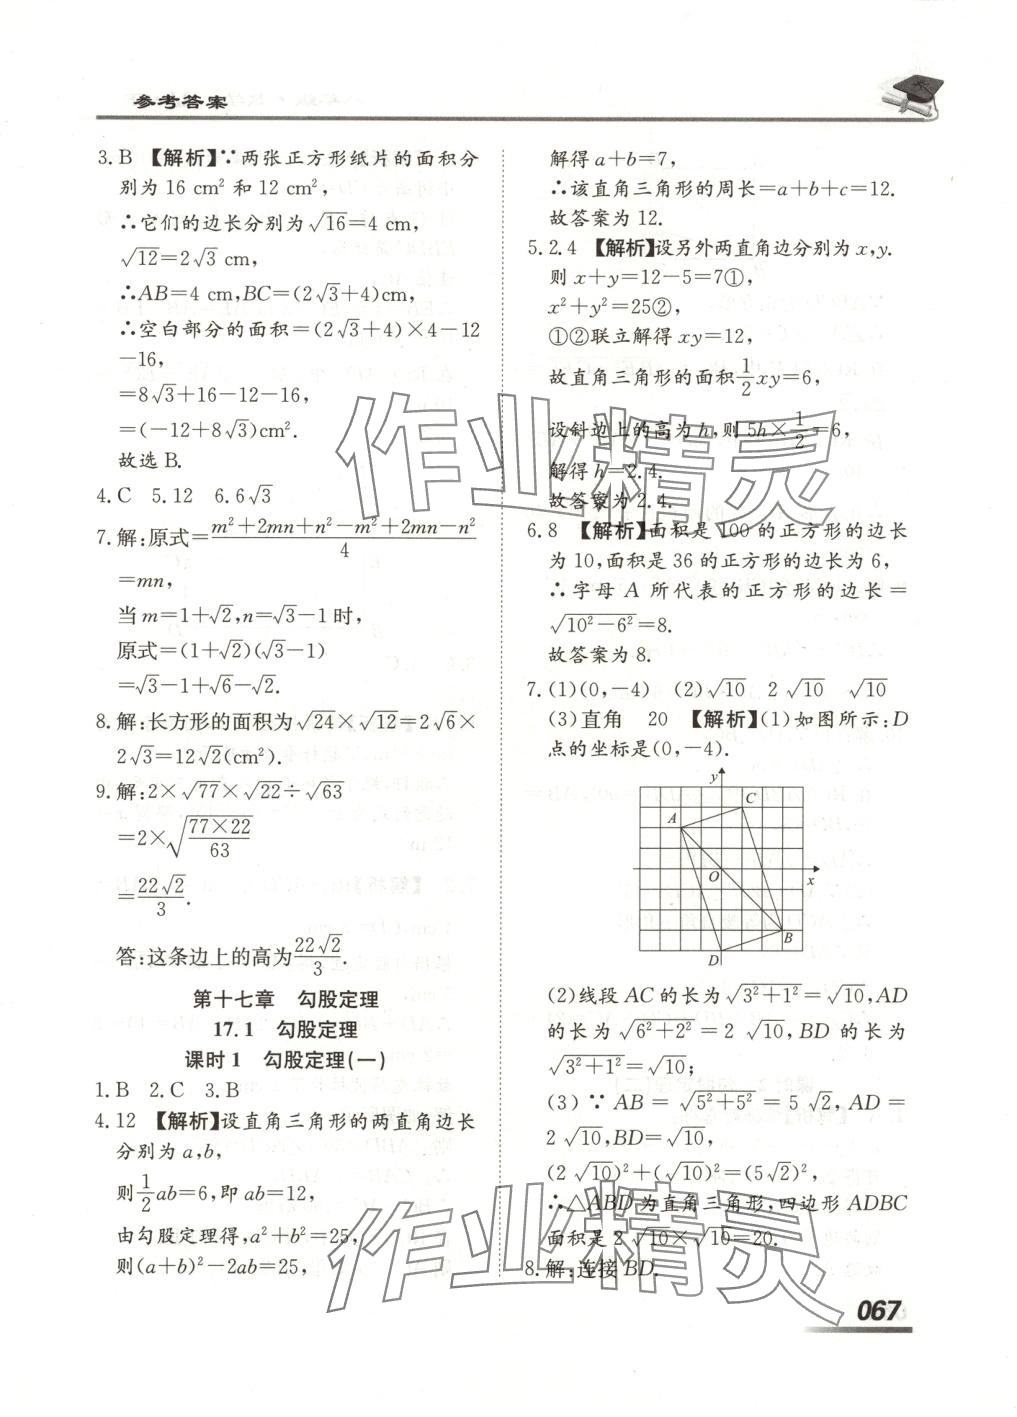 参考答案
3.B 【解析】∵两张正方形纸片的面积分
别为 16 cm² 和 12 cm²,
∴它们的边长分别为√16=4 cm,
√12=2√3 cm,
∴AB=4 cm,BC=(2√3+4)cm,
∴空白部分的面积=(2√3+4)×4-12
-16,
=8√3+16-12-16,
=(-12+8√3)cm².
故选 B.
4.C 5.12 6.6√3
7.解:原式=(m²+2mn+n²-m²+2mn-n²)/4
=mn,
当 m=1+√2,n=√3-1 时,
原式=(1+√2)(√3-1)
=√3-1+√6-√2.
8.解:长方形的面积为√24×√12=2√6×
2√3=12√2(cm²).
9.解:2×√77×√22÷√63
=2×√(77×22/63)
=22√2/3.
答:这条边上的高为22√2/3.
第十七章 勾股定理
17.1 勾股定理
课时1 勾股定理(一)
1.B 2.C 3.B
4.12 【解析】设直角三角形的两直角边长
分别为 a,b,
则1/2ab=6,即 ab=12,
由勾股定理得,a²+b²=25,
则(a+b)²-2ab=25,
解得 a+b=7,
∴该直角三角形的周长=a+b+c=12.
故答案为 12.
5.2.4 【解析】设另外两直角边分别为 x,y.
则 x+y=12-5=7①,
x²+y²=25②,
①②联立解得 xy=12,
故直角三角形的面积1/2xy=6,
设斜边上的高为 h,则 5h×1/2=6,
解得 h=2.4.
故答案为 2.4.
6.8 【解析】面积是 100 的正方形的边长
为 10,面积是 36 的正方形的边长为 6,
∴字母 A 所代表的正方形的边长=
√(10²-6²)=8.
故答案为 8.
7.(1)(0,-4) (2)√10 2√10 √10
(3)直角 20 【解析】(1)如图所示:D
点的坐标是(0,-4).
y
C
A
O
x
B
D
(2)线段 AC 的长为√(3²+1²)=√10,AD
的长为√(6²+2²)=2√10,BD 的长为
√(3²+1²)=√10;
(3)∵AB=√(5²+5²)=5√2,AD=
2√10,BD=√10,
(2√10)²+(√10)²=(5√2)²,
∴△ABD 为直角三角形,四边形 ADBC
面积是 2√10×√10=20.
8.解:连接 BD.
067
作业精灵
作业精灵